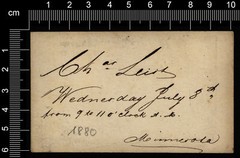 cm 1 2 3 4 5 6 7 8 9 10
1 2 3 4 5 6
Chas Leist
Wednesday July 3d
from 9 to 11 o'clock A.M.
1880
Minnesota